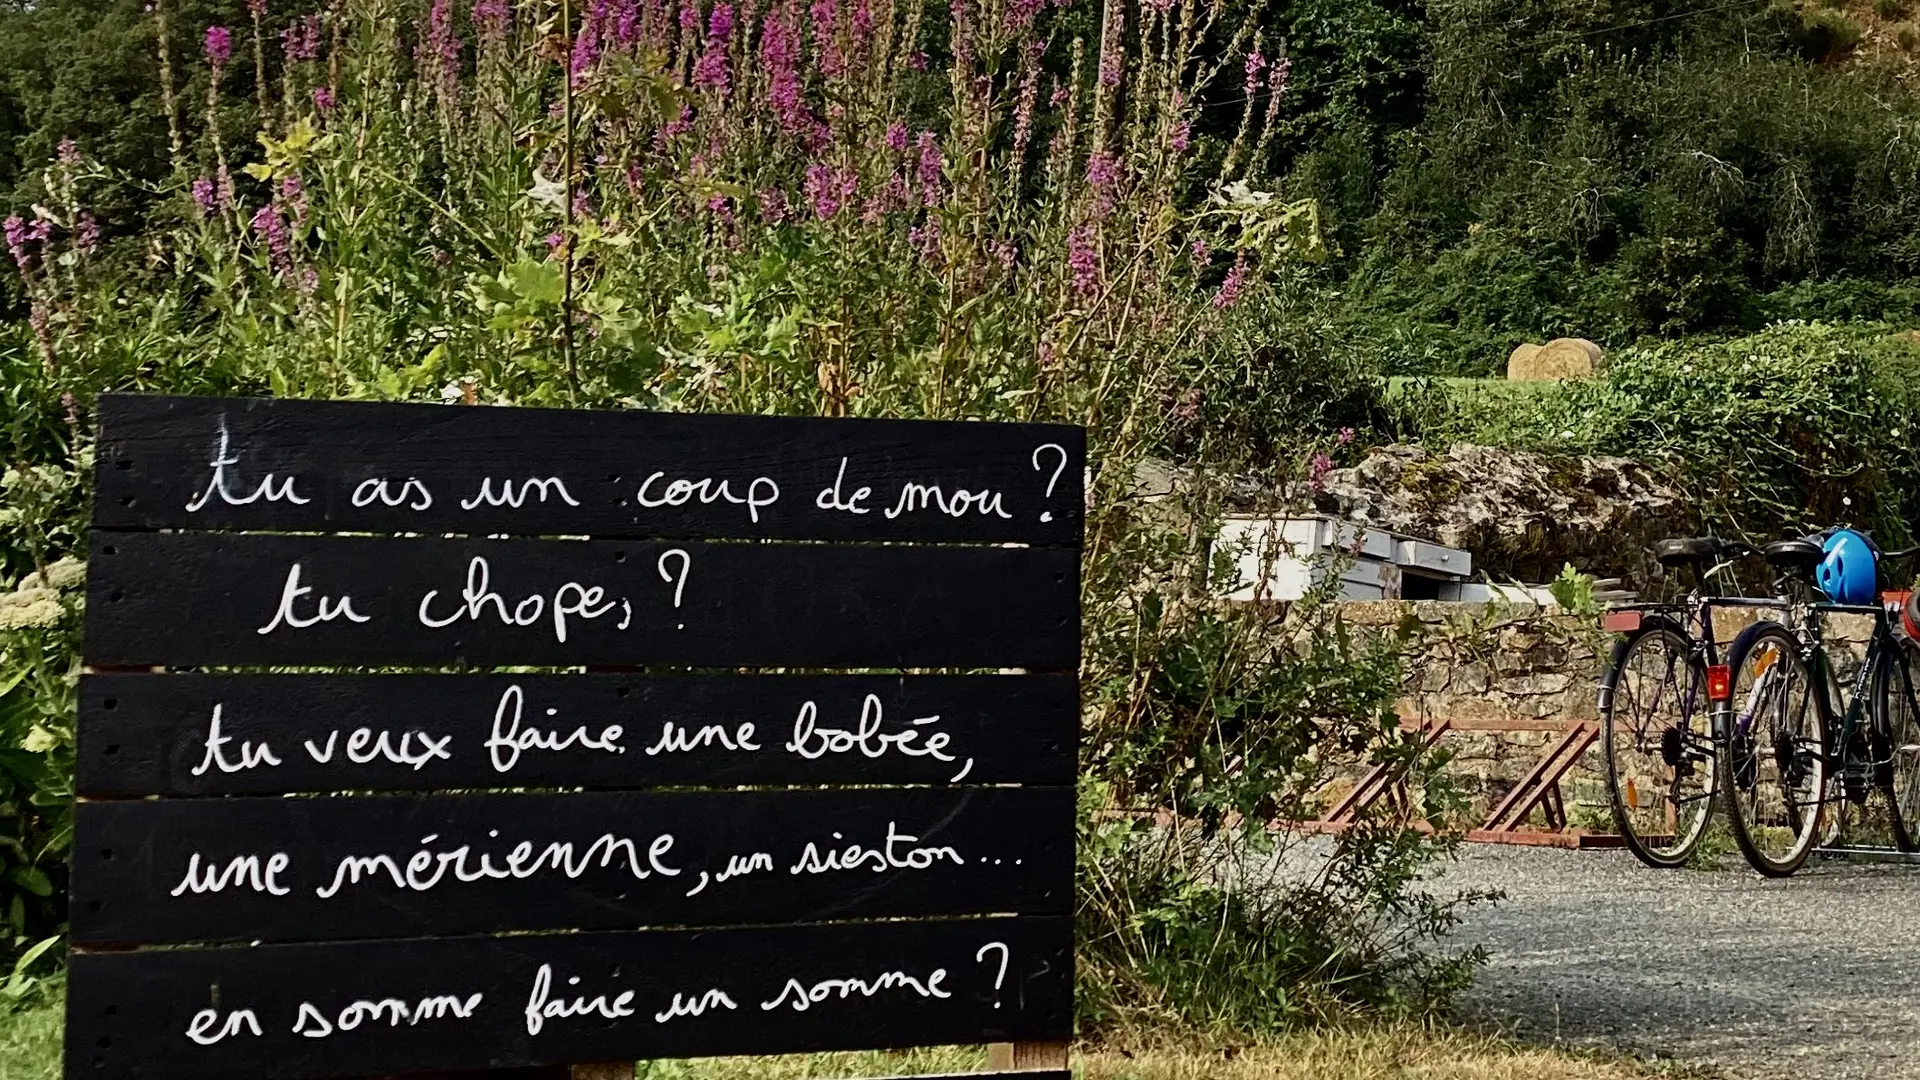 tu as un coup de mou ?
tu chopes ?
tu veux faire une bobée,
une mérienne, un sieston...
en somme faire un somme ?